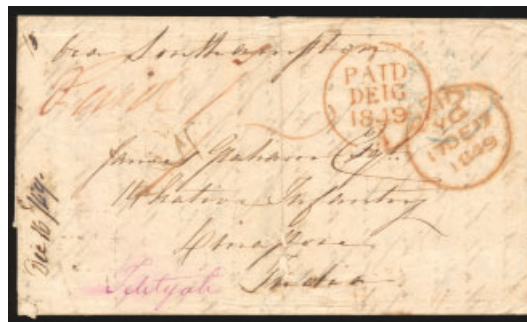 via Southampton
Paid
PAID
DE 16
1849
17 DE 17
1849
James Graham Esqr.
14 Native Infantry
Dinapore
India
Dec 16 / 49.